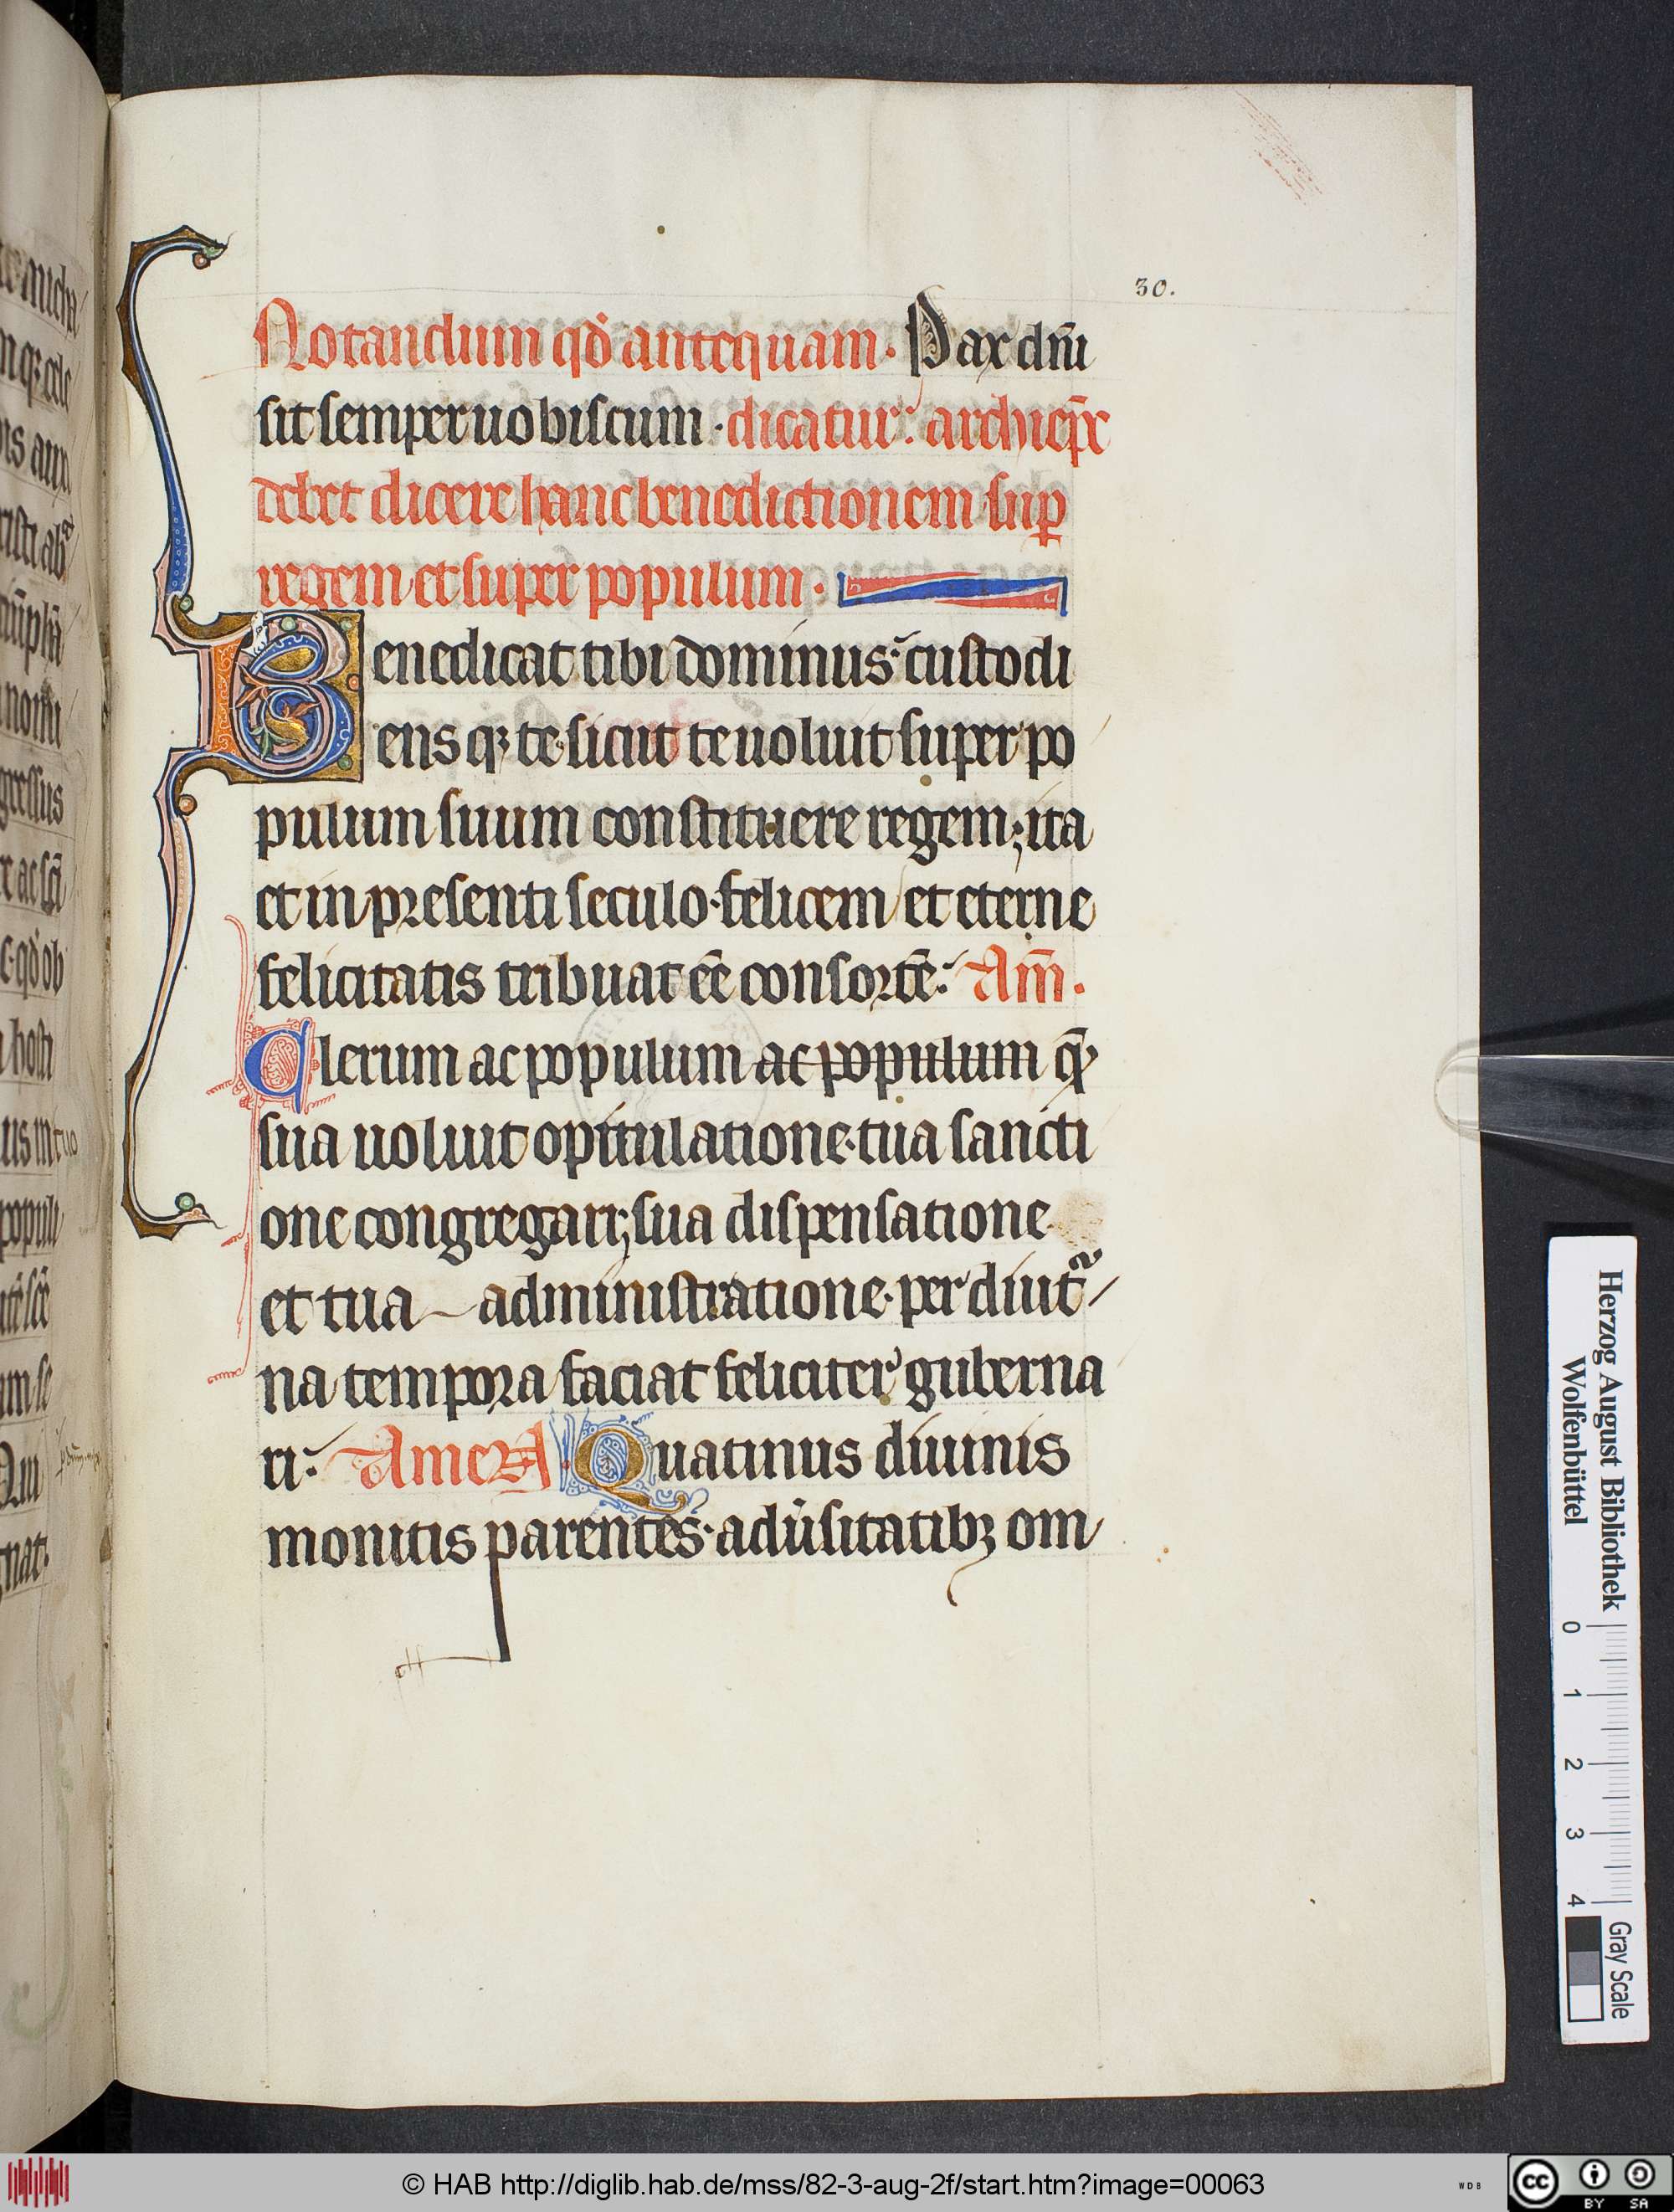 30.
Notandum qđ antequam. Pax dn̄i
sit semper uobiscum. dicatur: archiep̄c
debet dicere hanc benedictionem sup̱
regem et super populum.
Benedicat tibi dominus: custodi
ens qꝫ te. sicut te uoluit super po
pulum suum constituere regem; ita
et in presenti seculo. felicem et eterne
felicitatis tribuat ēē consortē: Am̄.
Clerum ac populum ac populum q̄
sua uoluit opitulatione. tua sancti
one congregari; sua dispensatione
et tua administratione. per diutᵃ
na tempora faciat feliciter guberna
ri: Amen. Quatinus diuinis
monitis parentes. adu̓sitatibꝫ om
Herzog August Bibliothek
Wolfenbüttel
0 1 2 3 4
Gray Scale
© HAB http://diglib.hab.de/mss/82-3-aug-2f/start.htm?image=00063
WDB
cc BY SA